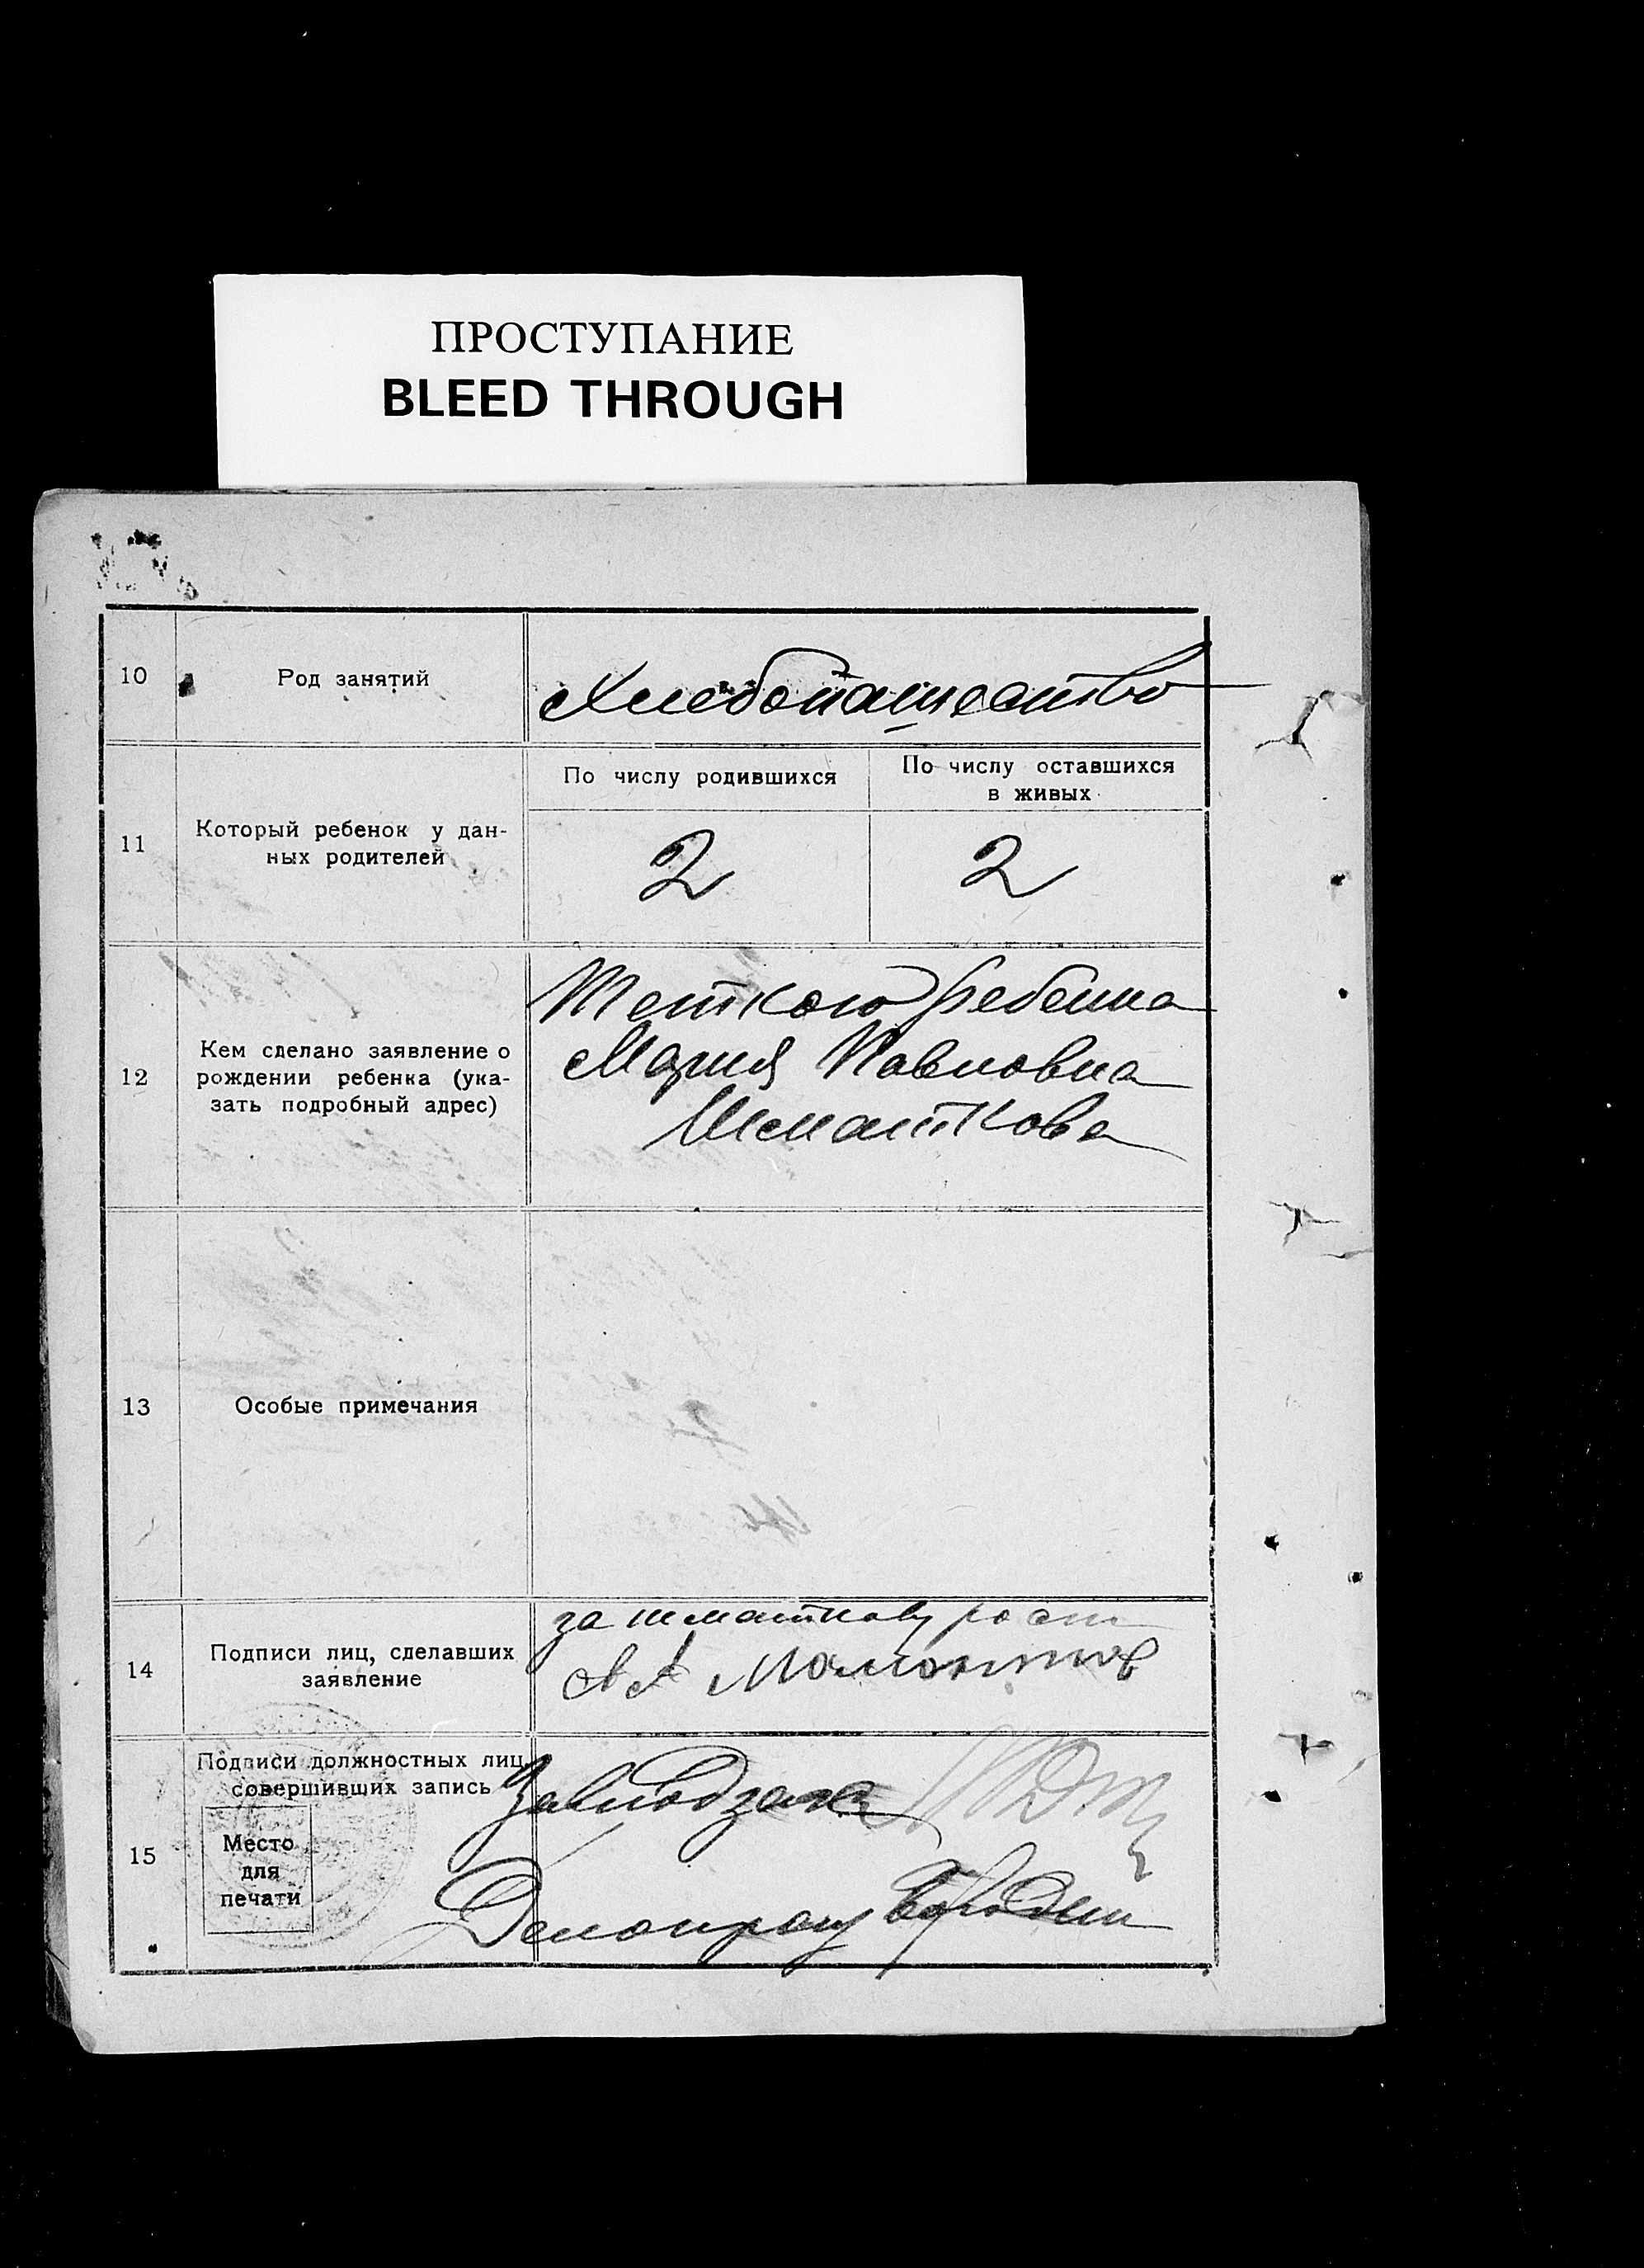 ПРОСТУПАНИЕ
BLEED THROUGH
10
Род занятий
Хлебопашество
11
Который ребенок у дан-
ных родителей
По числу родившихся
По числу оставшихся
в живых
2
2
12
Кем сделано заявление о
рождении ребенка (ука-
зать подробный адрес)
Теткою ребенка
Мария Павловна
Шматкова
13
Особые примечания
14
Подписи лиц, сделавших
заявление
за шматкову
15
Подписи должностных лиц
совершивших запись
Место
для
печати
Завподзагс
Делопроиз Бородин